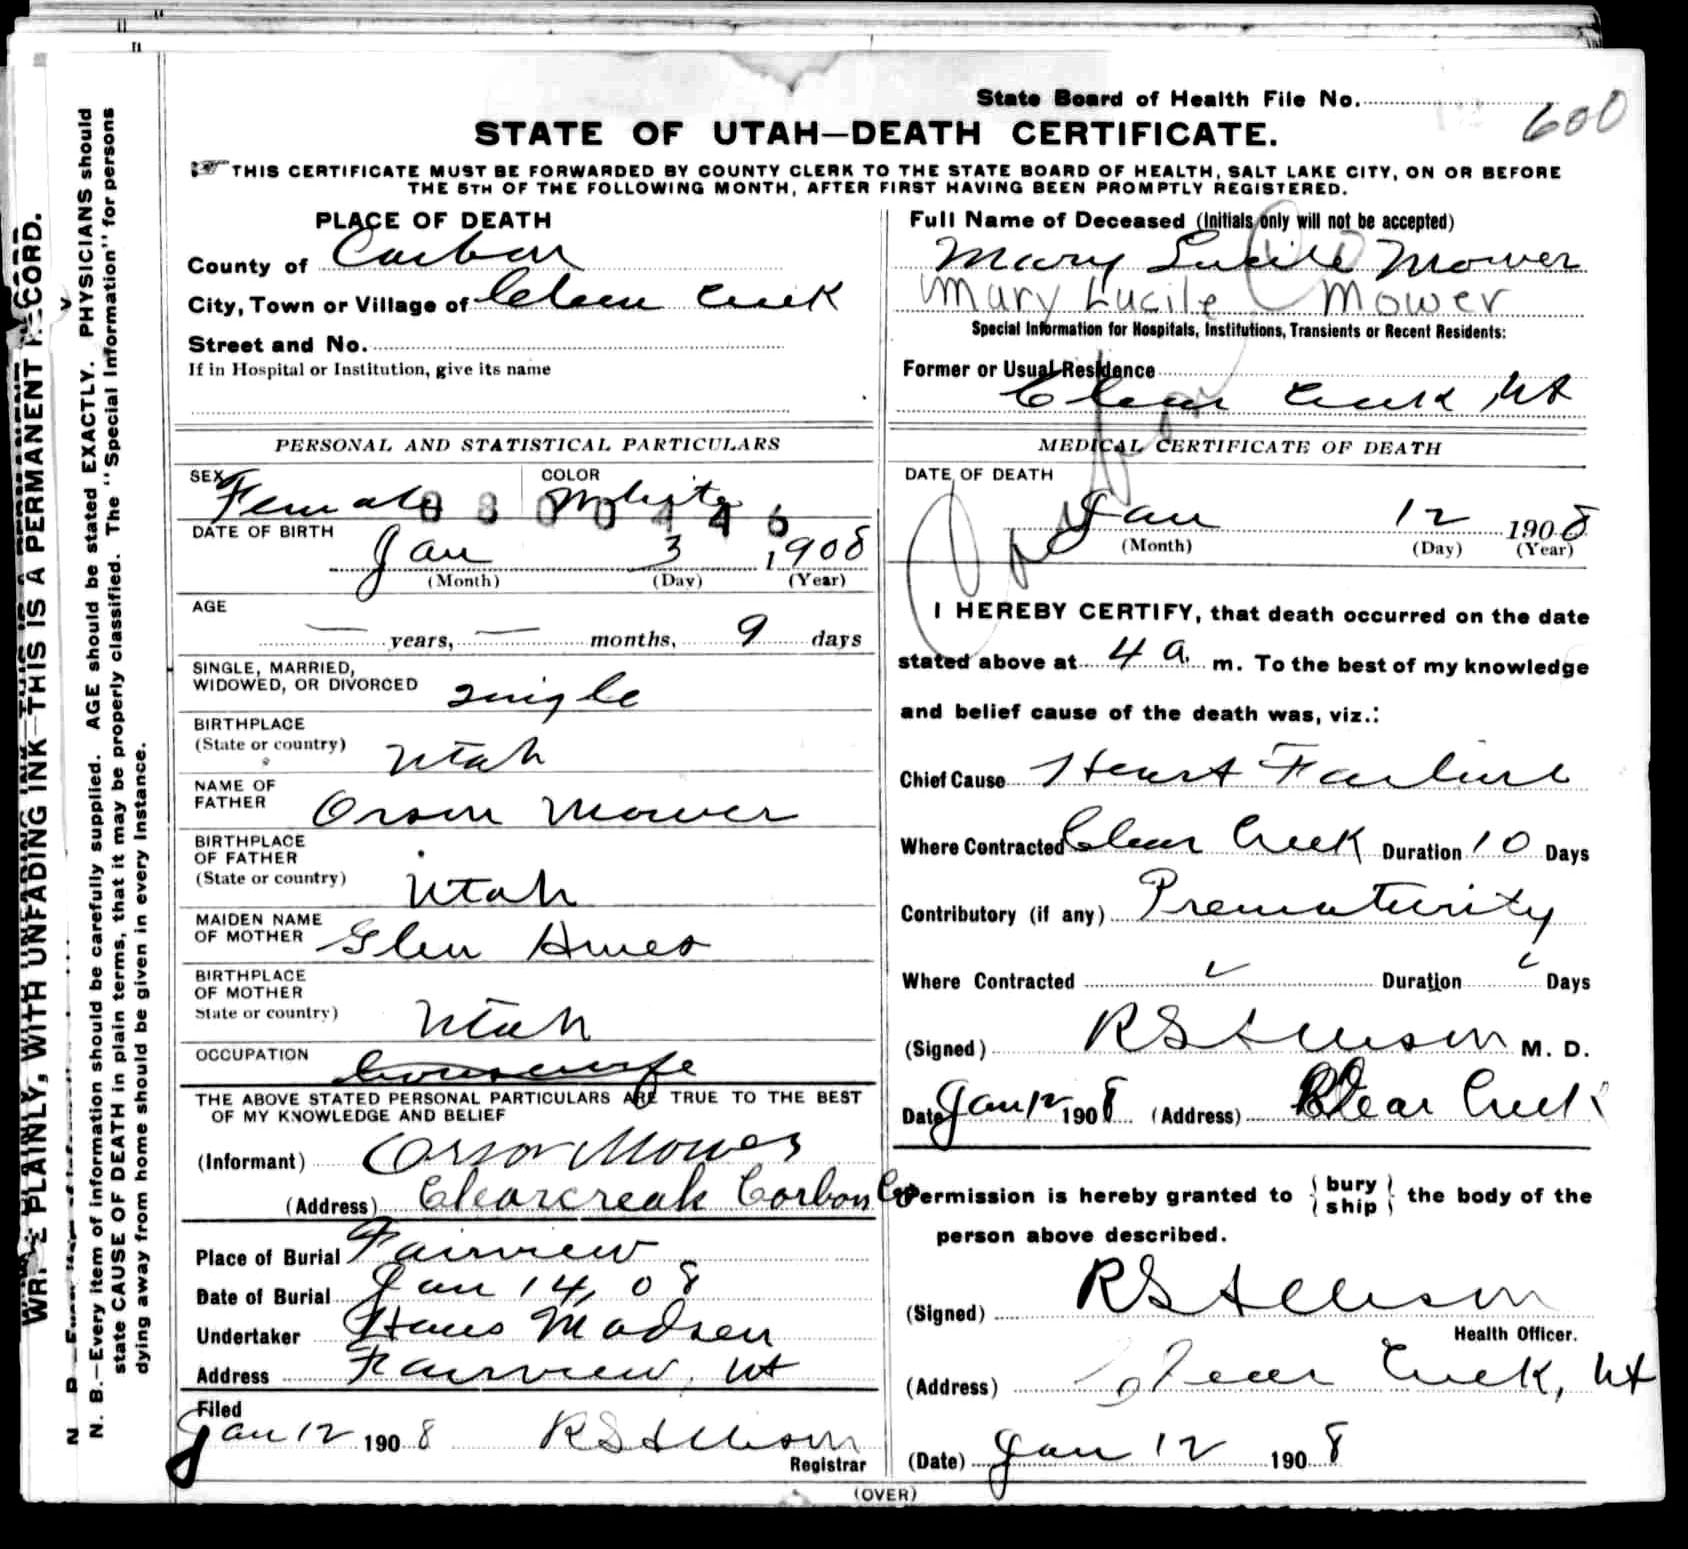 State Board of Health File No. 600
STATE OF UTAH—DEATH CERTIFICATE.
THIS CERTIFICATE MUST BE FORWARDED BY COUNTY CLERK TO THE STATE BOARD OF HEALTH, SALT LAKE CITY, ON OR BEFORE
THE 5TH OF THE FOLLOWING MONTH, AFTER FIRST HAVING BEEN PROMPTLY REGISTERED.
WRITE PLAINLY, WITH UNFADING INK—THIS IS A PERMANENT RECORD.
N. B.—Every item of information should be carefully supplied. AGE should be stated EXACTLY. PHYSICIANS should
state CAUSE OF DEATH in plain terms, that it may be properly classified. The "Special Information" for persons
dying away from home should be given in every instance.
PLACE OF DEATH
County of Carbon
City, Town or Village of Clear Creek
Street and No.
If in Hospital or Institution, give its name
PERSONAL AND STATISTICAL PARTICULARS
SEX Female
COLOR White
DATE OF BIRTH
Jan 3 1908
(Month) (Day) (Year)
AGE
— years, — months, 9 days
SINGLE, MARRIED,
WIDOWED, OR DIVORCED single
BIRTHPLACE
(State or country) Utah
NAME OF
FATHER Orson Mower
BIRTHPLACE
OF FATHER
(State or country) Utah
MAIDEN NAME
OF MOTHER Glen
BIRTHPLACE
OF MOTHER
State or country) Utah
OCCUPATION housewife
THE ABOVE STATED PERSONAL PARTICULARS ARE TRUE TO THE BEST
OF MY KNOWLEDGE AND BELIEF
(Informant) Orson Mower
(Address) Clearcreak Corbon Co
Place of Burial Fairview
Date of Burial Jan 14, 08
Undertaker Hans Madsen
Address Fairview, Ut
Filed
Jan 12 1908 RS Allison
Registrar
Full Name of Deceased (Initials only will not be accepted)
Mary Lucile Mower
Mary Lucile Mower
Special Information for Hospitals, Institutions, Transients or Recent Residents:
Former or Usual Residence
Clear Creek, Ut
MEDICAL CERTIFICATE OF DEATH
DATE OF DEATH
Jan 12 1908
(Month) (Day) (Year)
I HEREBY CERTIFY, that death occurred on the date
stated above at 4 a. m. To the best of my knowledge
and belief cause of the death was, viz.:
Chief Cause Heart Failure
Where Contracted Clear Creek Duration 10 Days
Contributory (if any) Prematurity
Where Contracted Duration Days
(Signed) RS Allison M. D.
Date Jan 12 1908 (Address) Clear Creek
Permission is hereby granted to { bury
ship } the body of the
person above described.
(Signed) RS Allison
Health Officer.
(Address) Clear Creek, Ut
(Date) Jan 12 1908
(OVER)